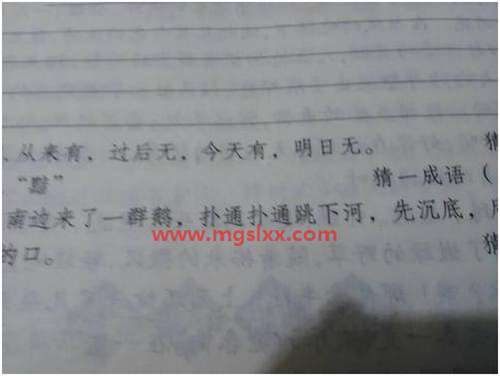 、从来有，过后无，今天有，明日无。 猜
“黯” 猜一成语（
南边来了一群鹅，扑通扑通跳下河，先沉底，
www.mgslxx.com
的口。 猜